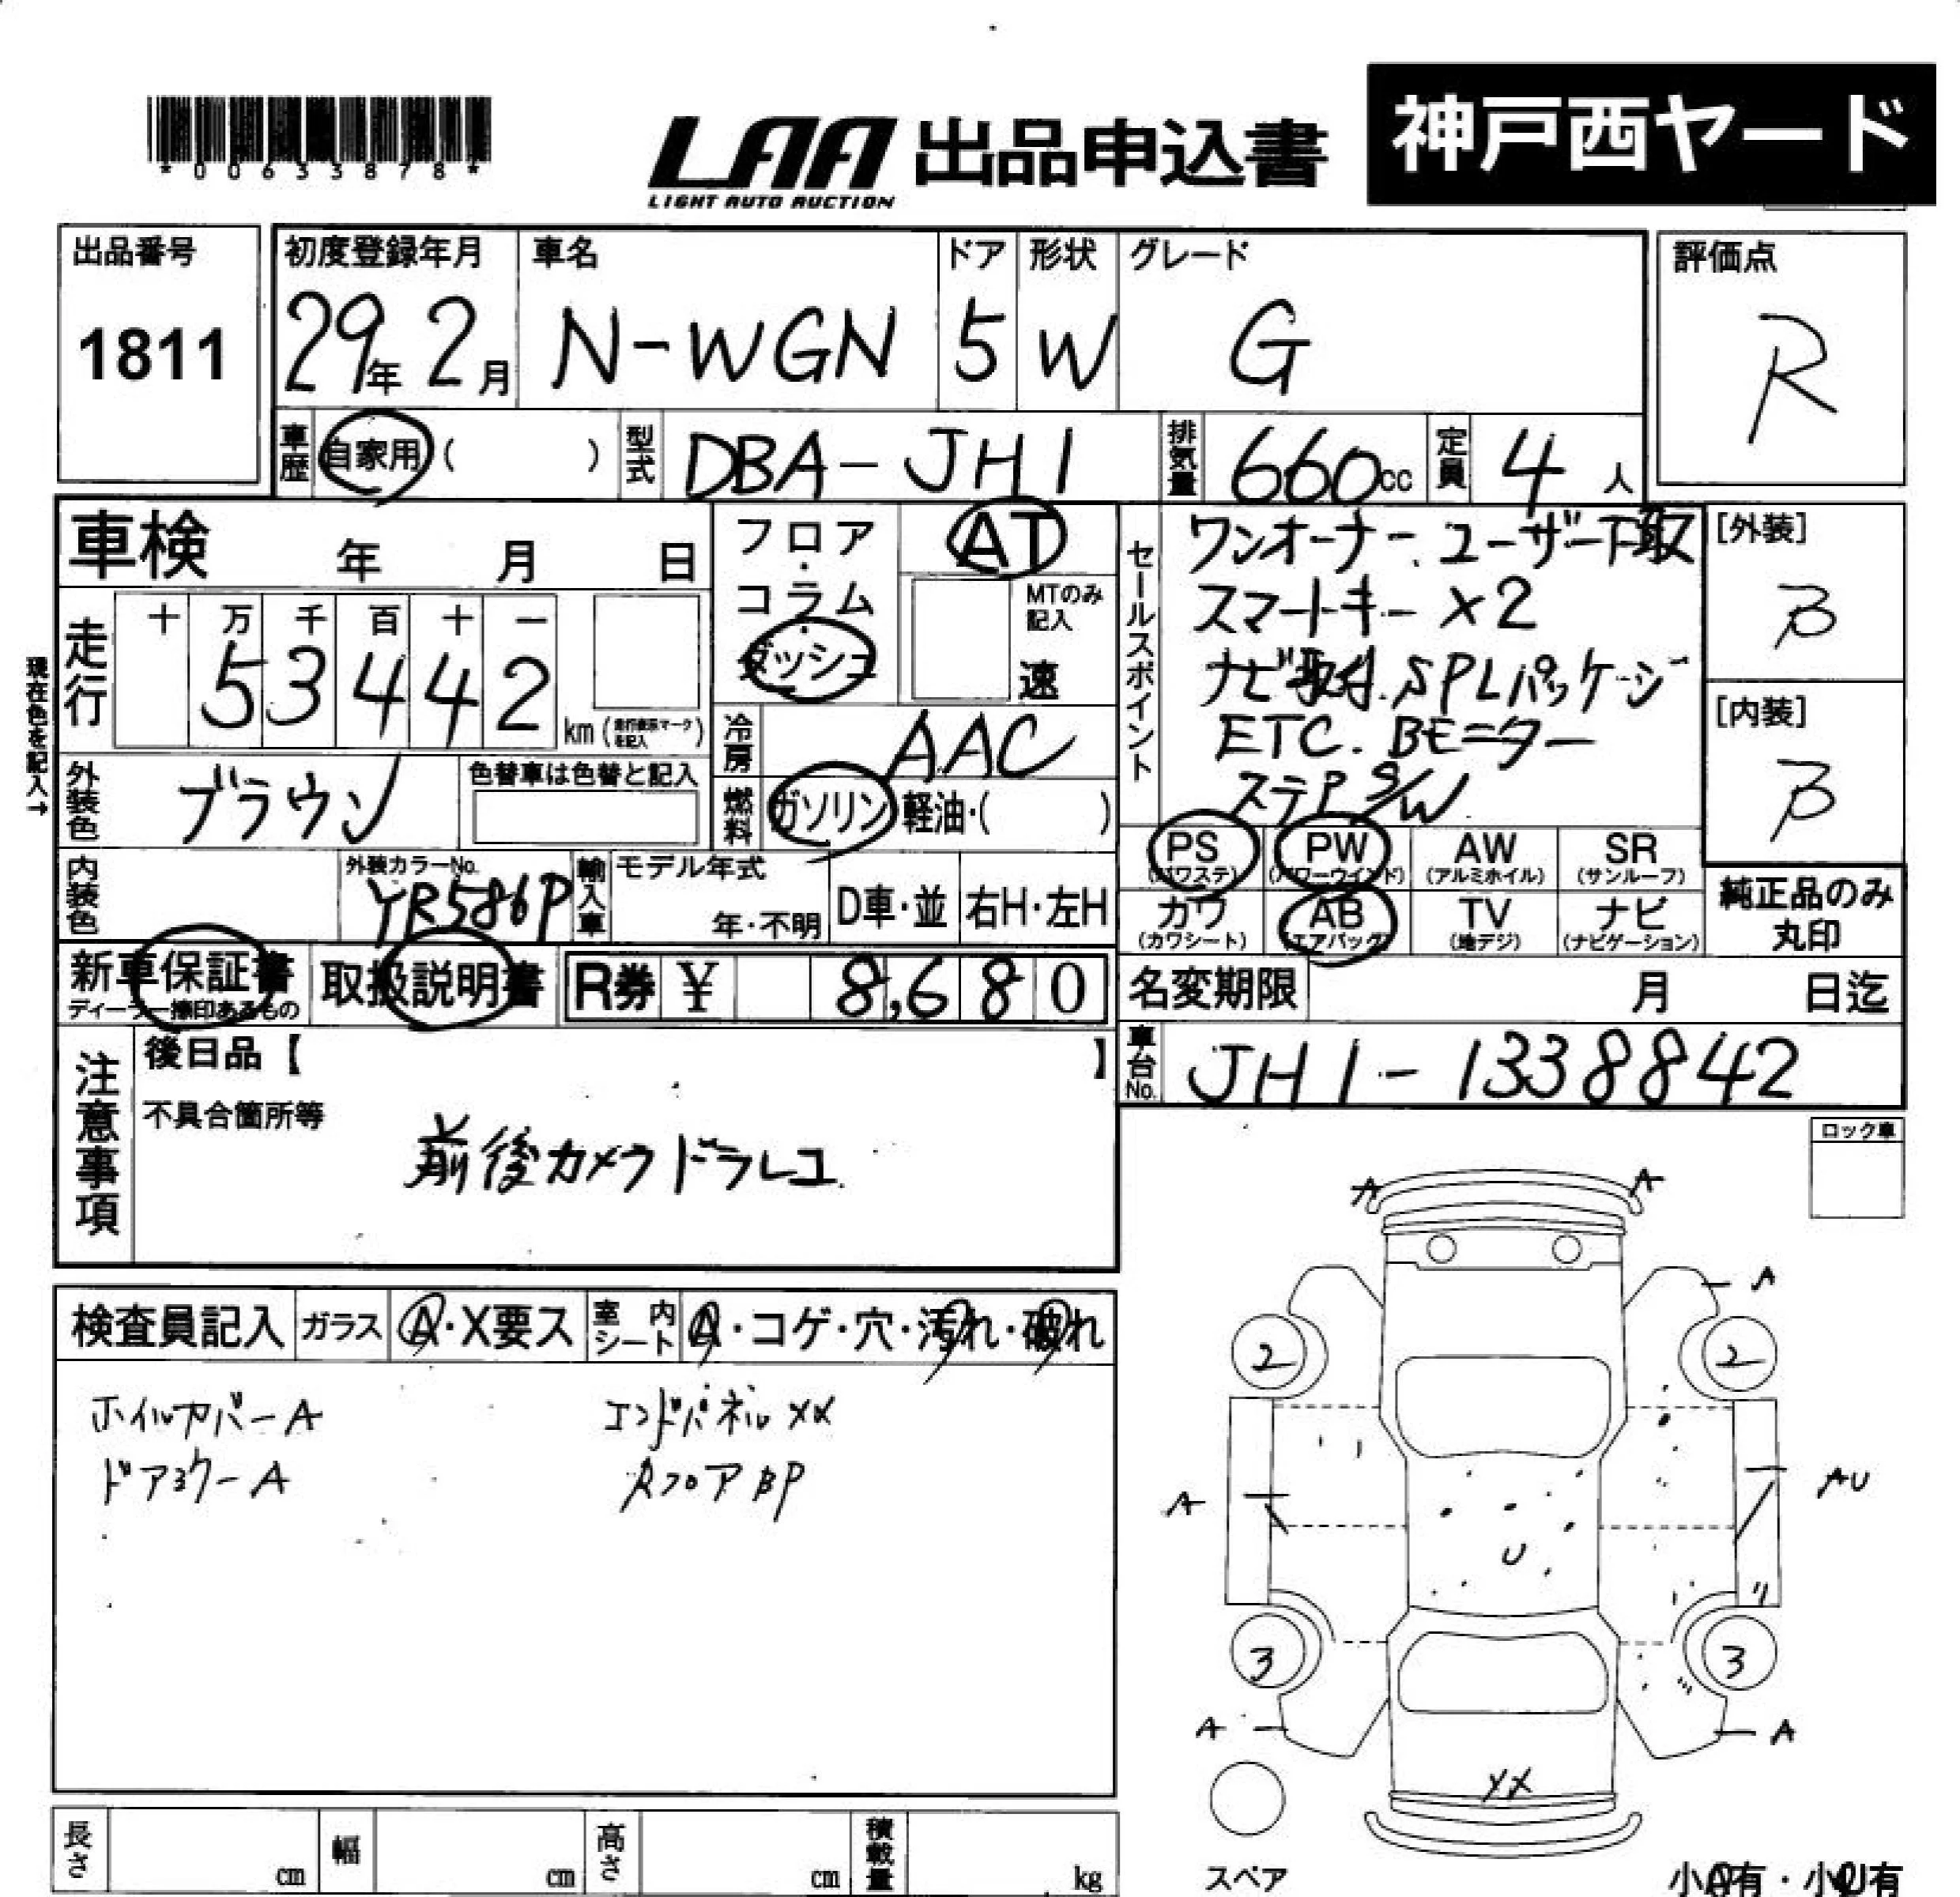 *00633878*
LAA 出品申込書
LIGHT AUTO AUCTION
神戸西ヤード
出品番号
1811
初度登録年月
29年 2月
車名
N-WGN
ドア
5
形状
W
グレード
G
評価点
R
車歴
自家用 ( )
型式
DBA-JH1
排気量
660cc
定員
4人
車検 年 月 日
フロア・コラム・ダッシュ
AT
MTのみ記入
速
セールスポイント
ワンオーナー、ユーザー下取
スマートキー×2
ナビ取付.SPLパッケージ
ETC. BEニター
ステP S/W
[外装]
B
[内装]
B
現在色を記入→
走行
十 万 千 百 十 一
5 3 4 4 2
km (走行表示マークを記入)
冷房
AAC
外装色
ブラウン
色替車は色替と記入
燃料
ガソリン 軽油・( )
PS (パワステ)
PW (パワーウインド)
AW (アルミホイル)
SR (サンルーフ)
カワ (カワシート)
AB (エアバッグ)
TV (地デジ)
ナビ (ナビゲーション)
純正品のみ丸印
内装色
外装カラーNo.
YR586P
輸入車
モデル年式
年・不明
D車・並
右H・左H
新車保証書
ディーラー捺印あるもの
取扱説明書
R券 ¥ 8,680
名変期限 月 日迄
車台No.
JH1-1338842
注意事項
後日品【 】
不具合箇所等
前後カメラドラレコ
ロック車
検査員記入
ガラス
A・X要ス
室内シート
A・コゲ・穴・汚れ・破れ
ホイルカバーA
ドアミラーA
エンドパネルXX
RフロアBP
A A
A
2 2
A AU
U
3 3
A A
XX
スペア
小A有・小U有
長さ cm
幅 cm
高さ cm
積載量 kg